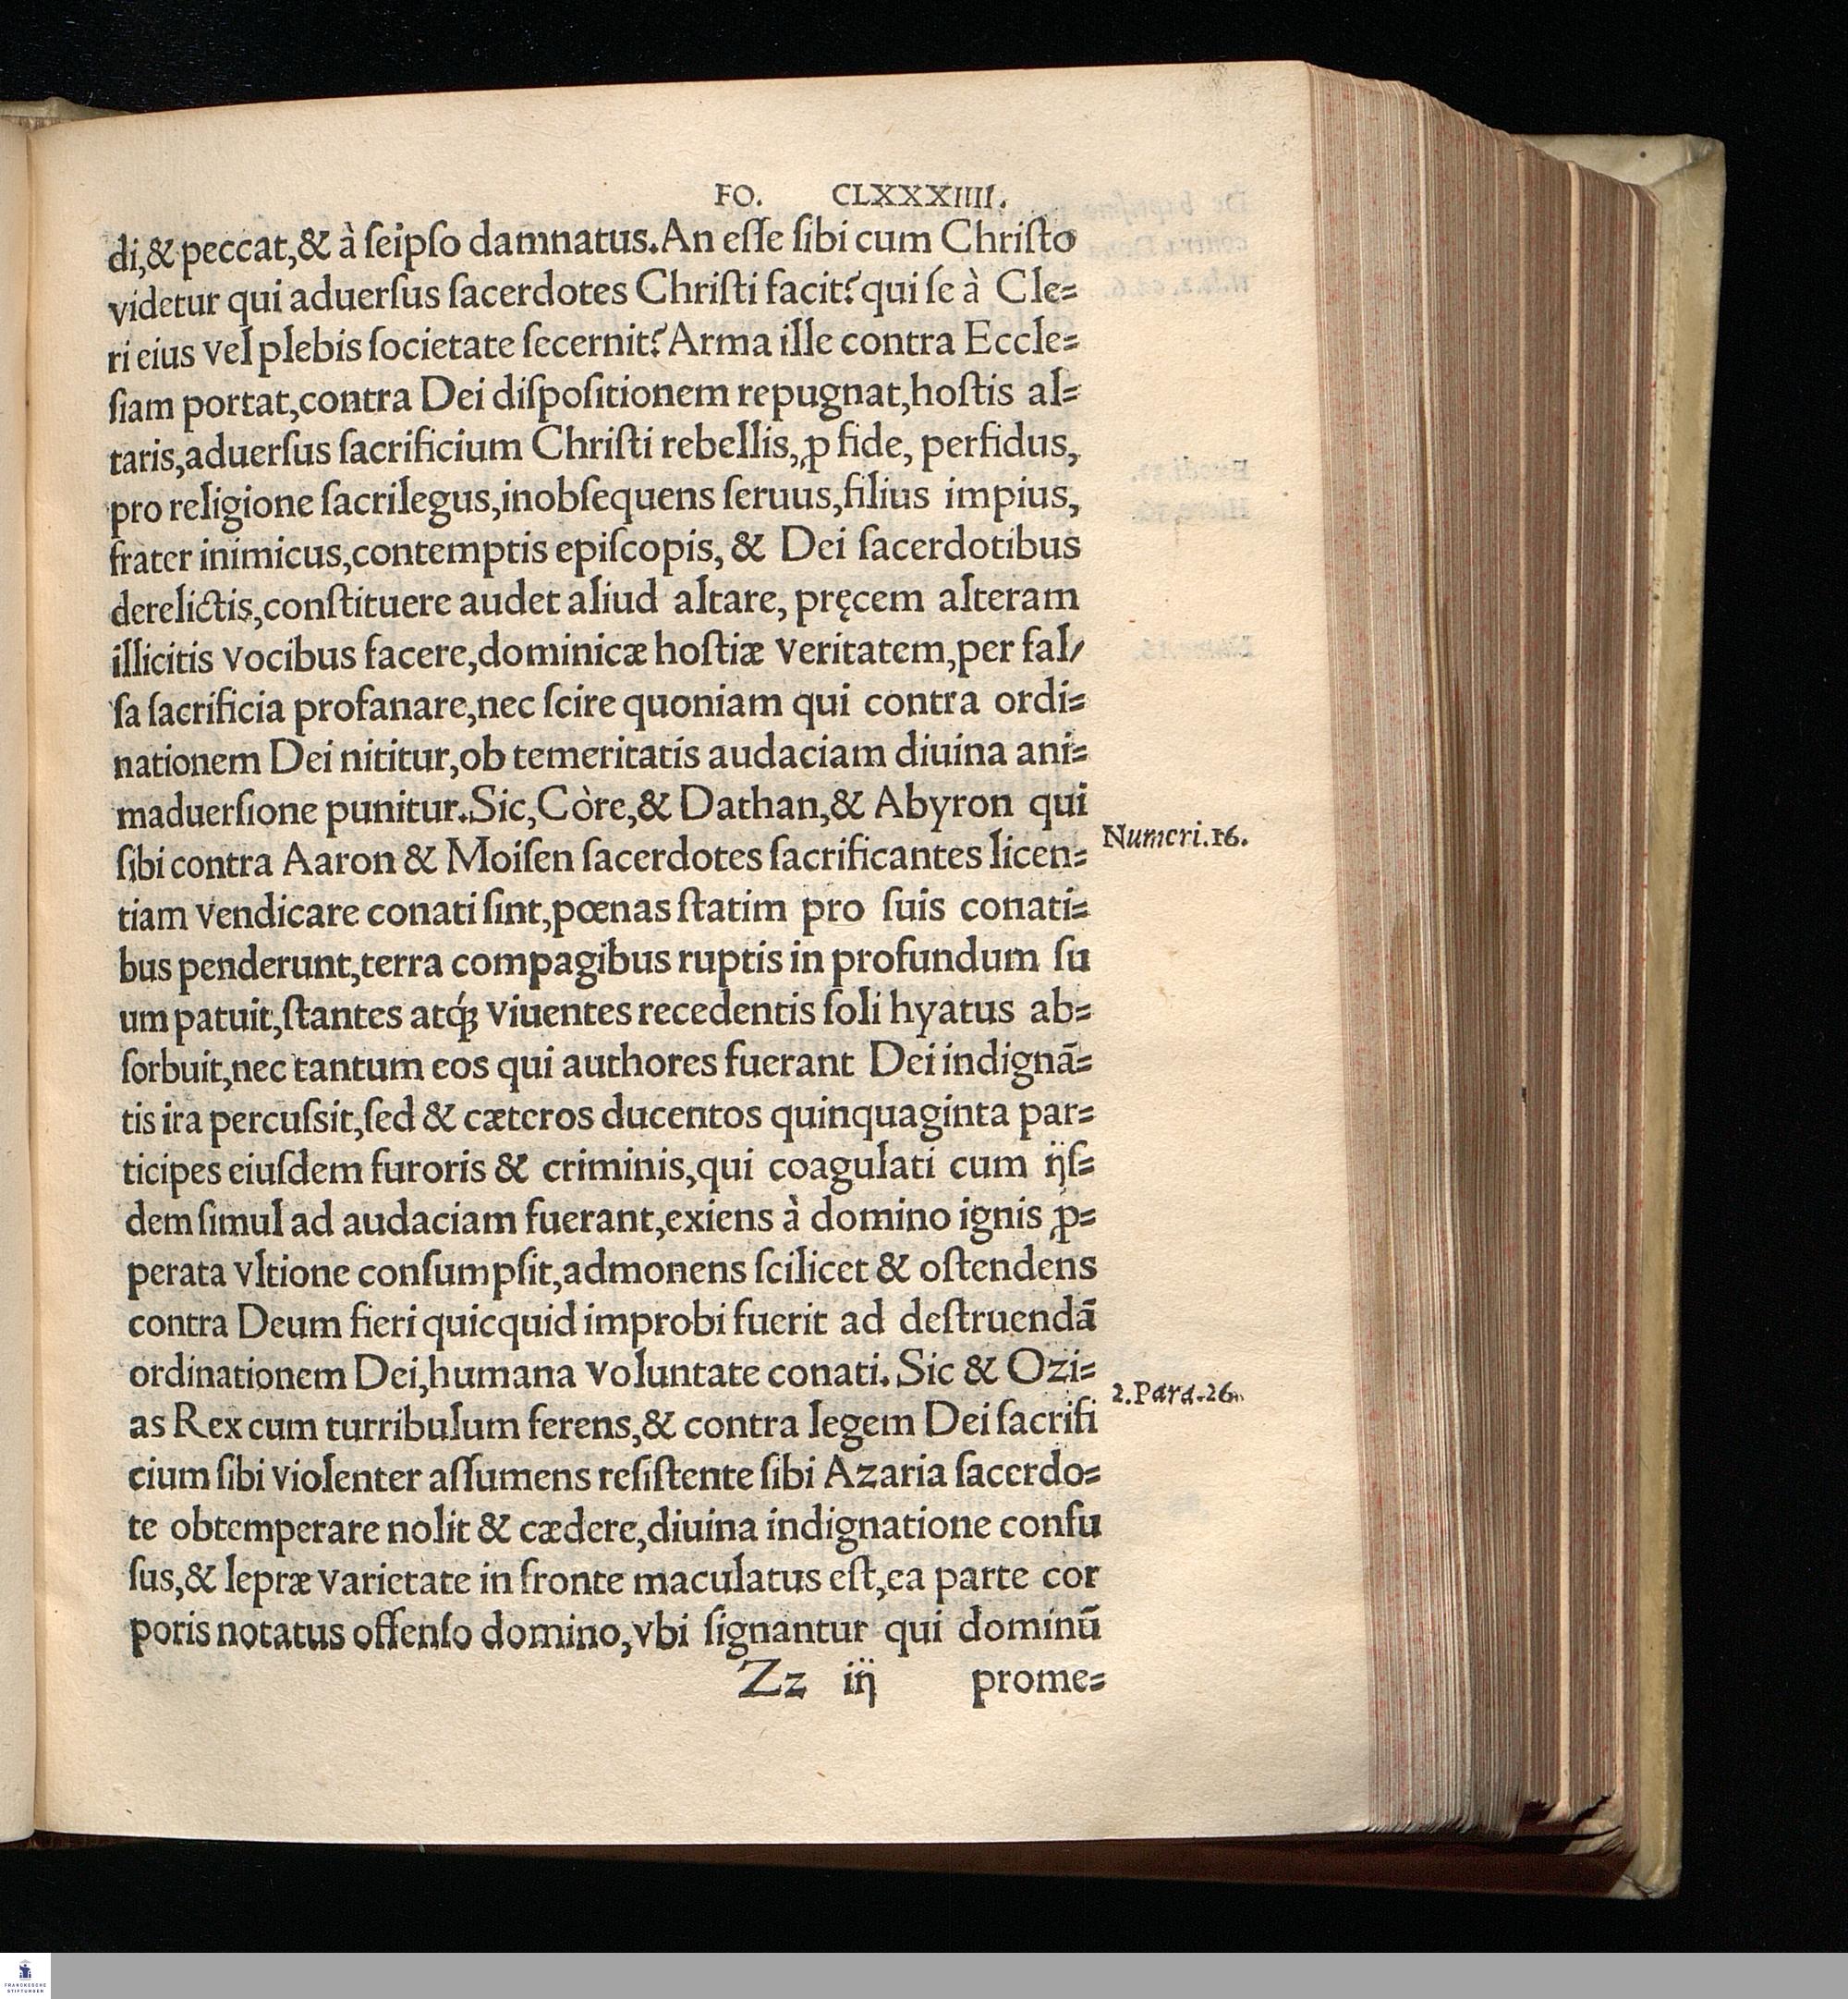 FO. CLXXXIIII.
di,& peccat,& à ſeipſo damnatus.An eſſe ſibi cum Chriſto
videtur qui aduerſus ſacerdotes Chriſti facit?qui ſe à Cle=
ri eius vel plebis ſocietate ſecernit?Arma ille contra Eccle=
ſiam portat,contra Dei diſpoſitionem repugnat,hoſtis al=
taris,aduerſus ſacrificium Chriſti rebellis,ꝓ fide, perfidus,
pro religione ſacrilegus,inobſequens ſeruus,filius impius,
frater inimicus,contemptis epiſcopis, & Dei ſacerdotibus
derelictis,conſtituere audet aliud altare, pręcem alteram
illicitis vocibus facere,dominicæ hoſtiæ veritatem,per fal/
ſa ſacrificia profanare,nec ſcire quoniam qui contra ordi=
nationem Dei nititur,ob temeritatis audaciam diuina ani=
maduerſione punitur.Sic,Còre,& Dathan,& Abyron qui
Numeri.16.
ſibi contra Aaron & Moiſen ſacerdotes ſacrificantes licen=
tiam vendicare conati ſint,pœnas ſtatim pro ſuis conati=
bus penderunt,terra compagibus ruptis in profundum ſu
um patuit,ſtantes atq́ꝫ viuentes recedentis ſoli hyatus ab=
ſorbuit,nec tantum eos qui authores fuerant Dei indignā=
tis ira percuſsit,ſed & cæteros ducentos quinquaginta par=
ticipes eiuſdem furoris & criminis,qui coagulati cum ijſ=
dem ſimul ad audaciam fuerant,exiens à domino ignis ꝓ=
perata vltione conſumpſit,admonens ſcilicet & oſtendens
contra Deum fieri quicquid improbi fuerit ad deſtruendā
ordinationem Dei,humana voluntate conati. Sic & Ozi=
2.Para.26.
as Rex cum turribulum ferens,& contra legem Dei ſacrifi
cium ſibi violenter aſſumens reſiſtente ſibi Azaria ſacerdo=
te obtemperare nolit & cædere,diuina indignatione confu
ſus,& lepræ varietate in fronte maculatus eſt,ea parte cor
poris notatus offenſo domino,vbi ſignantur qui dominū
Zz iij prome=
FRANCKESCHE
STIFTUNGEN